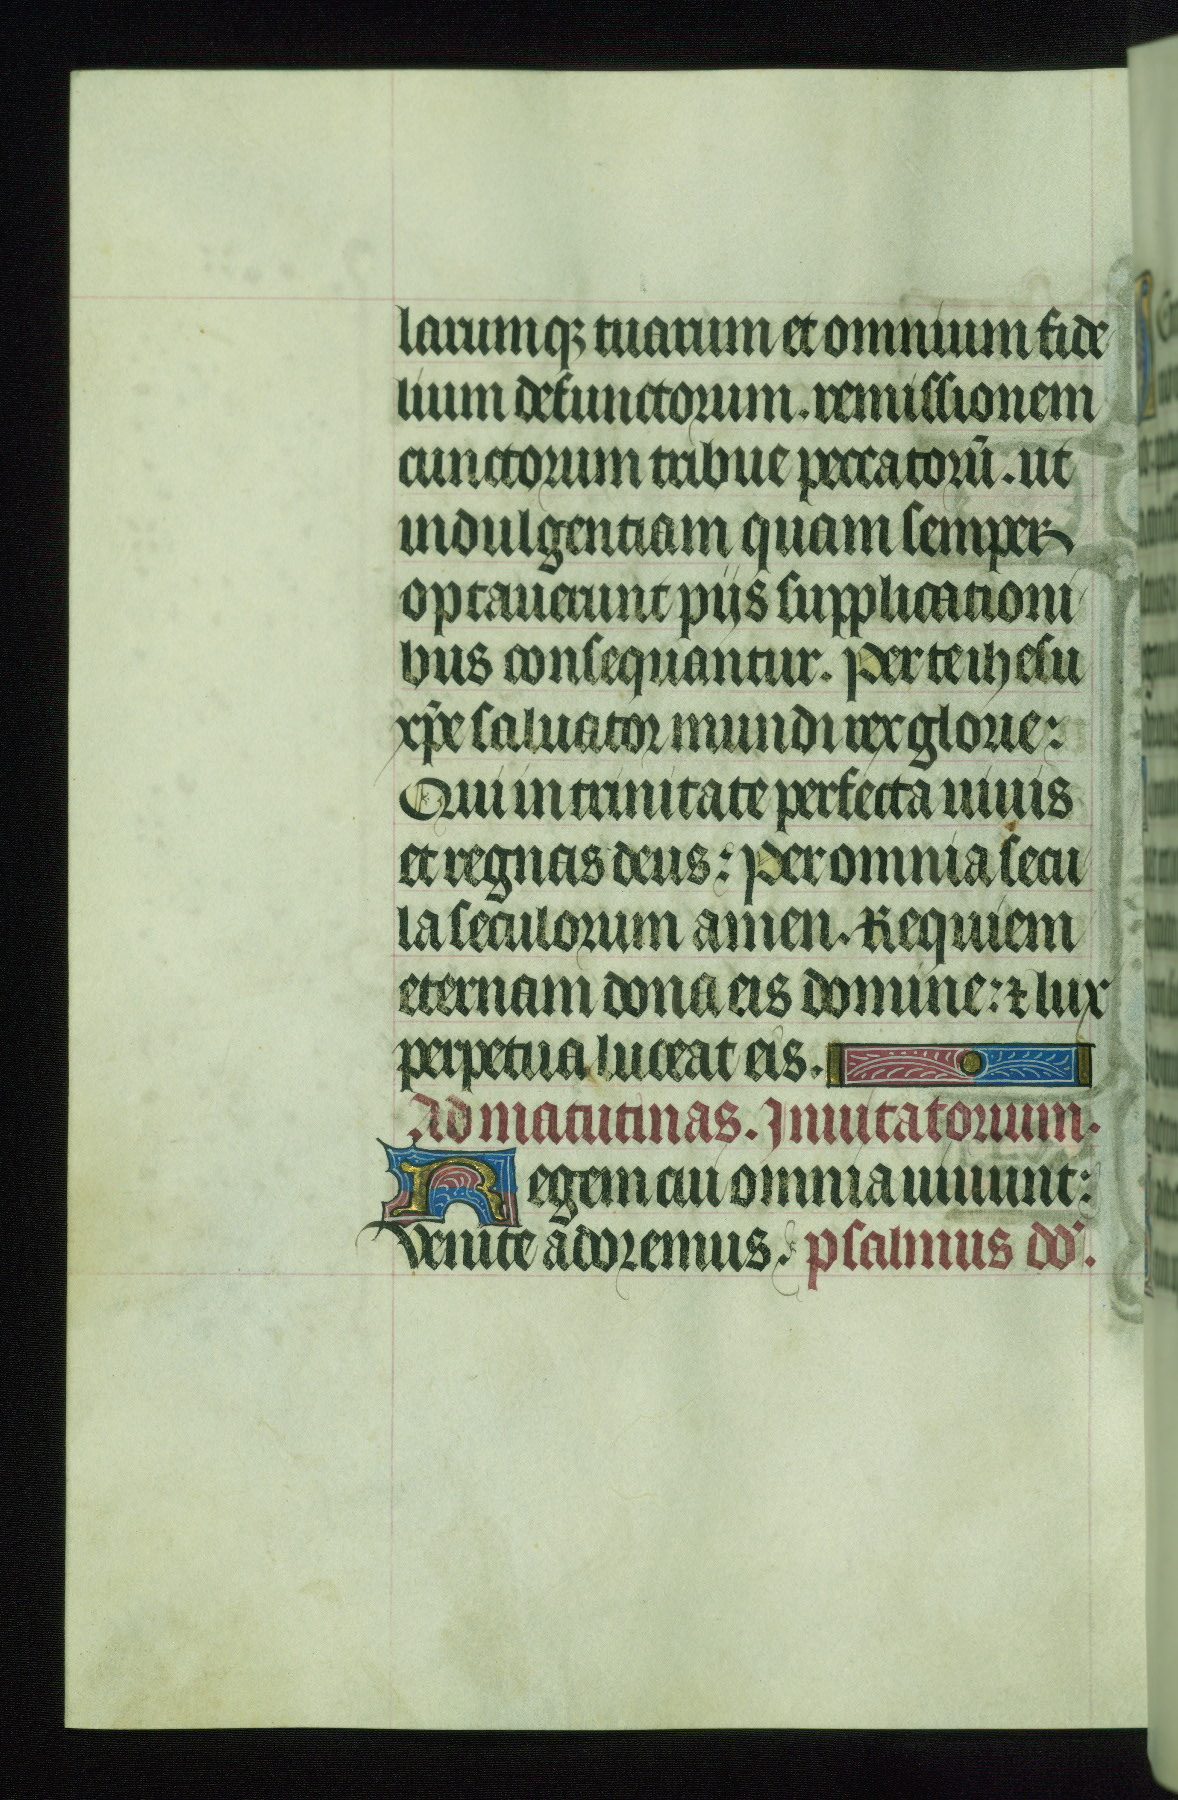 larumq; tuarum et omnium fide
lium defunctorum. remissionem
cunctorum tribue peccatorū. ut
indulgentiam quam semper
optauerunt piis supplicationi
bus consequantur. Per te ihesu
xp̄e saluator mundi rex glorie:
Qui in trinitate perfecta uiuis
et regnas deus: Per omnia secu
la seculorum amen. Requiem
eternam dona eis domine: ⁊ lux
perpetua luceat eis.
Ad matutinas. Inuitatorium.
Regem cui omnia uiuunt:
Venite adoremus. psalmus dd̄.